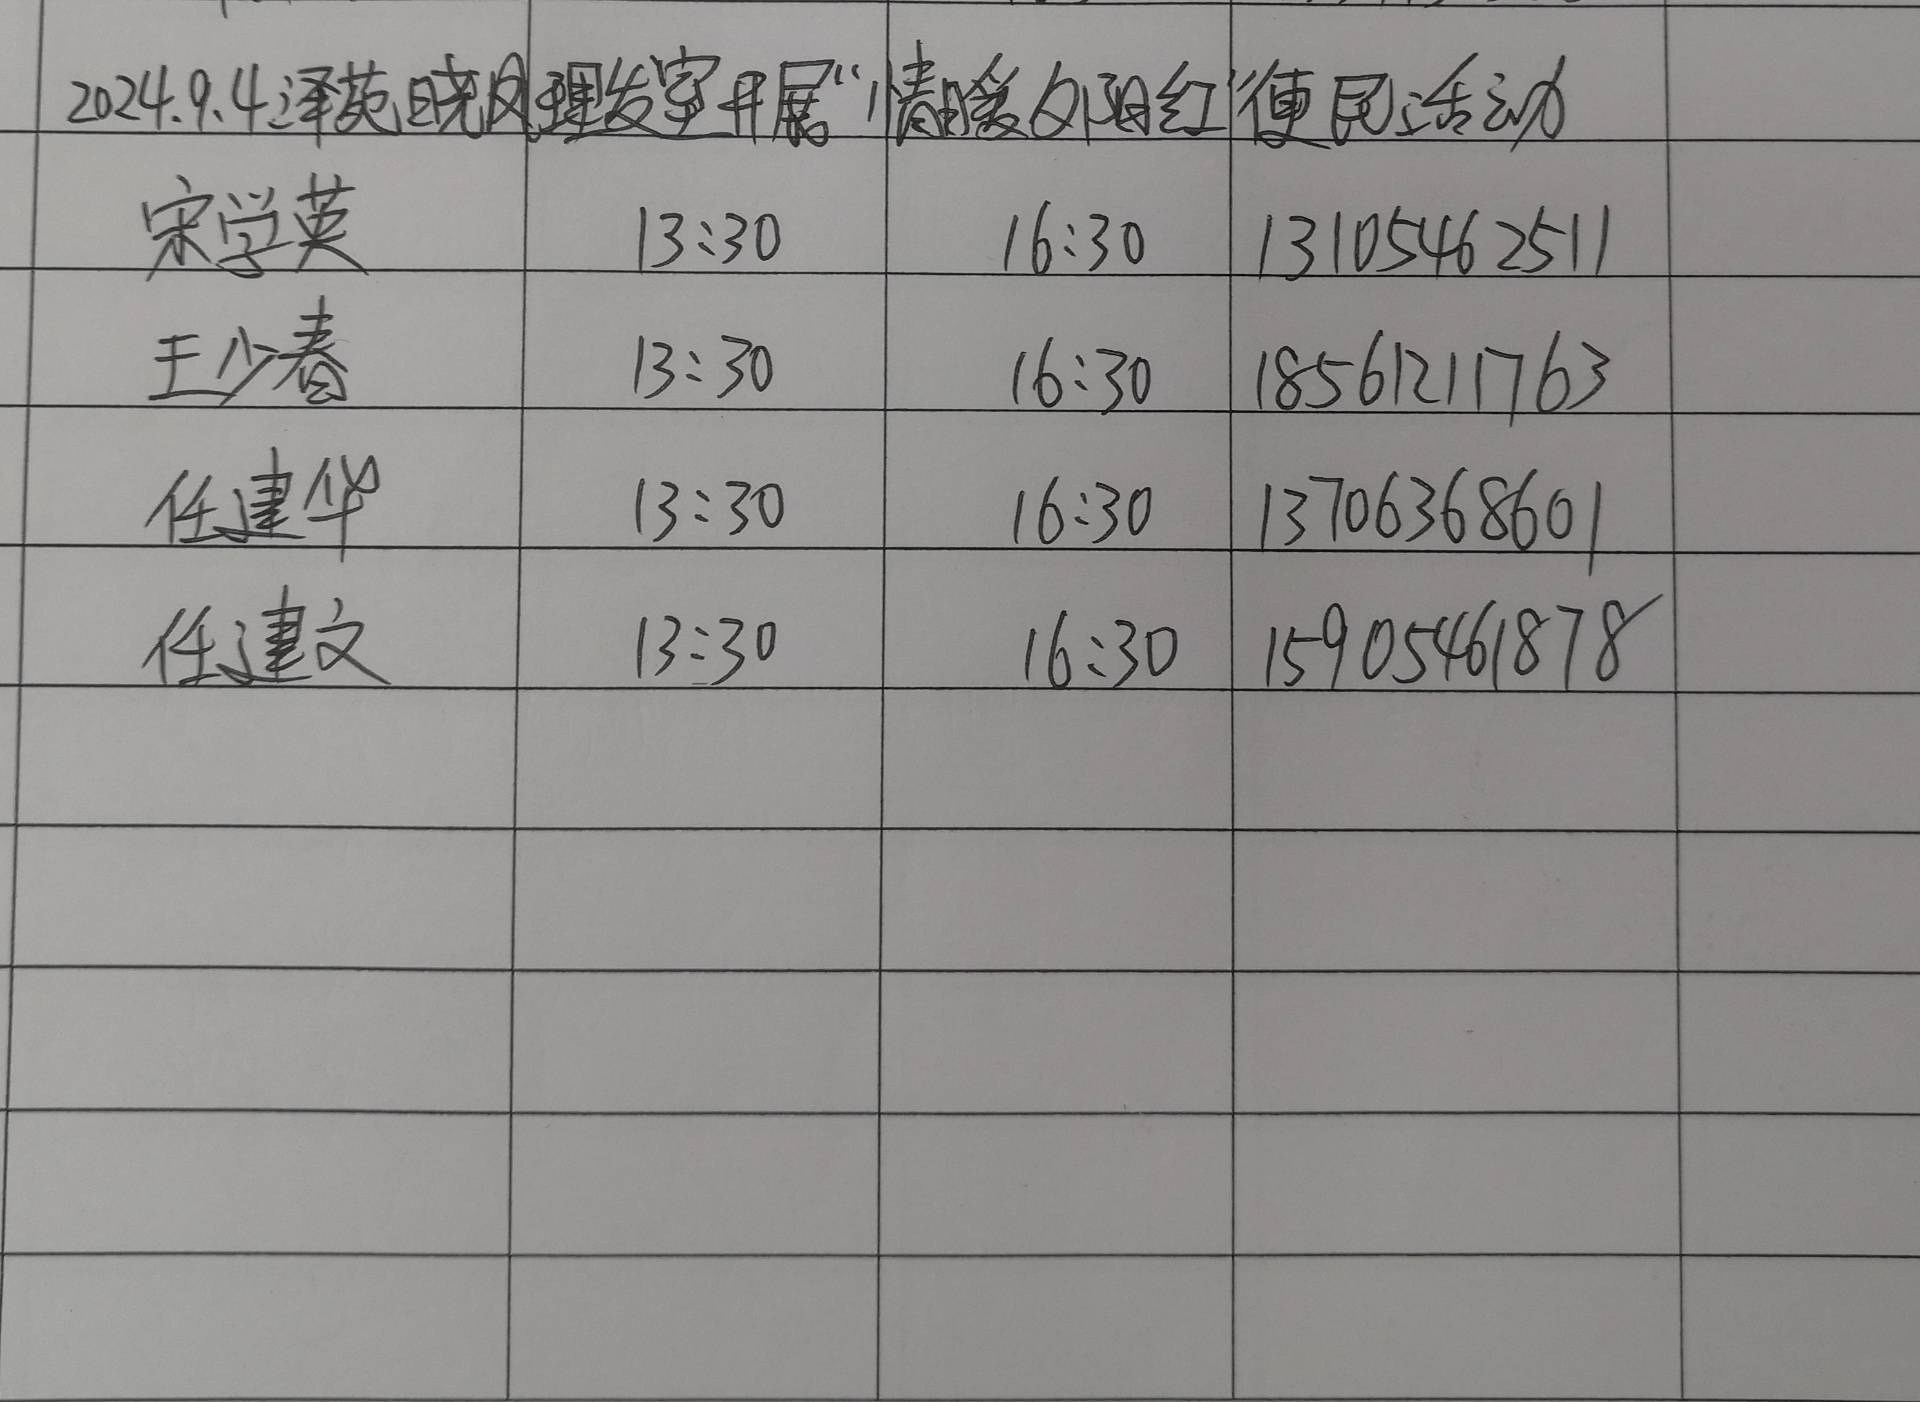 2024.9.4泽苑晓月理发室开展“情暖夕阳红”便民活动
宋学英 13:30 16:30 13105462511
王少春 13:30 16:30 18561211763
任建华 13:30 16:30 13706368601
任建文 13:30 16:30 15905461878